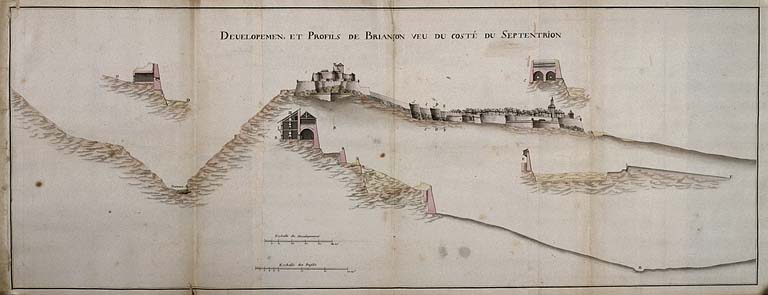 DEUELOPEMEN. ET PROFILS DE BRIANÇON VEU DU COSTÉ DU SEPTENTRION
Eschelle du Deuelopement
Eschelle des Profils